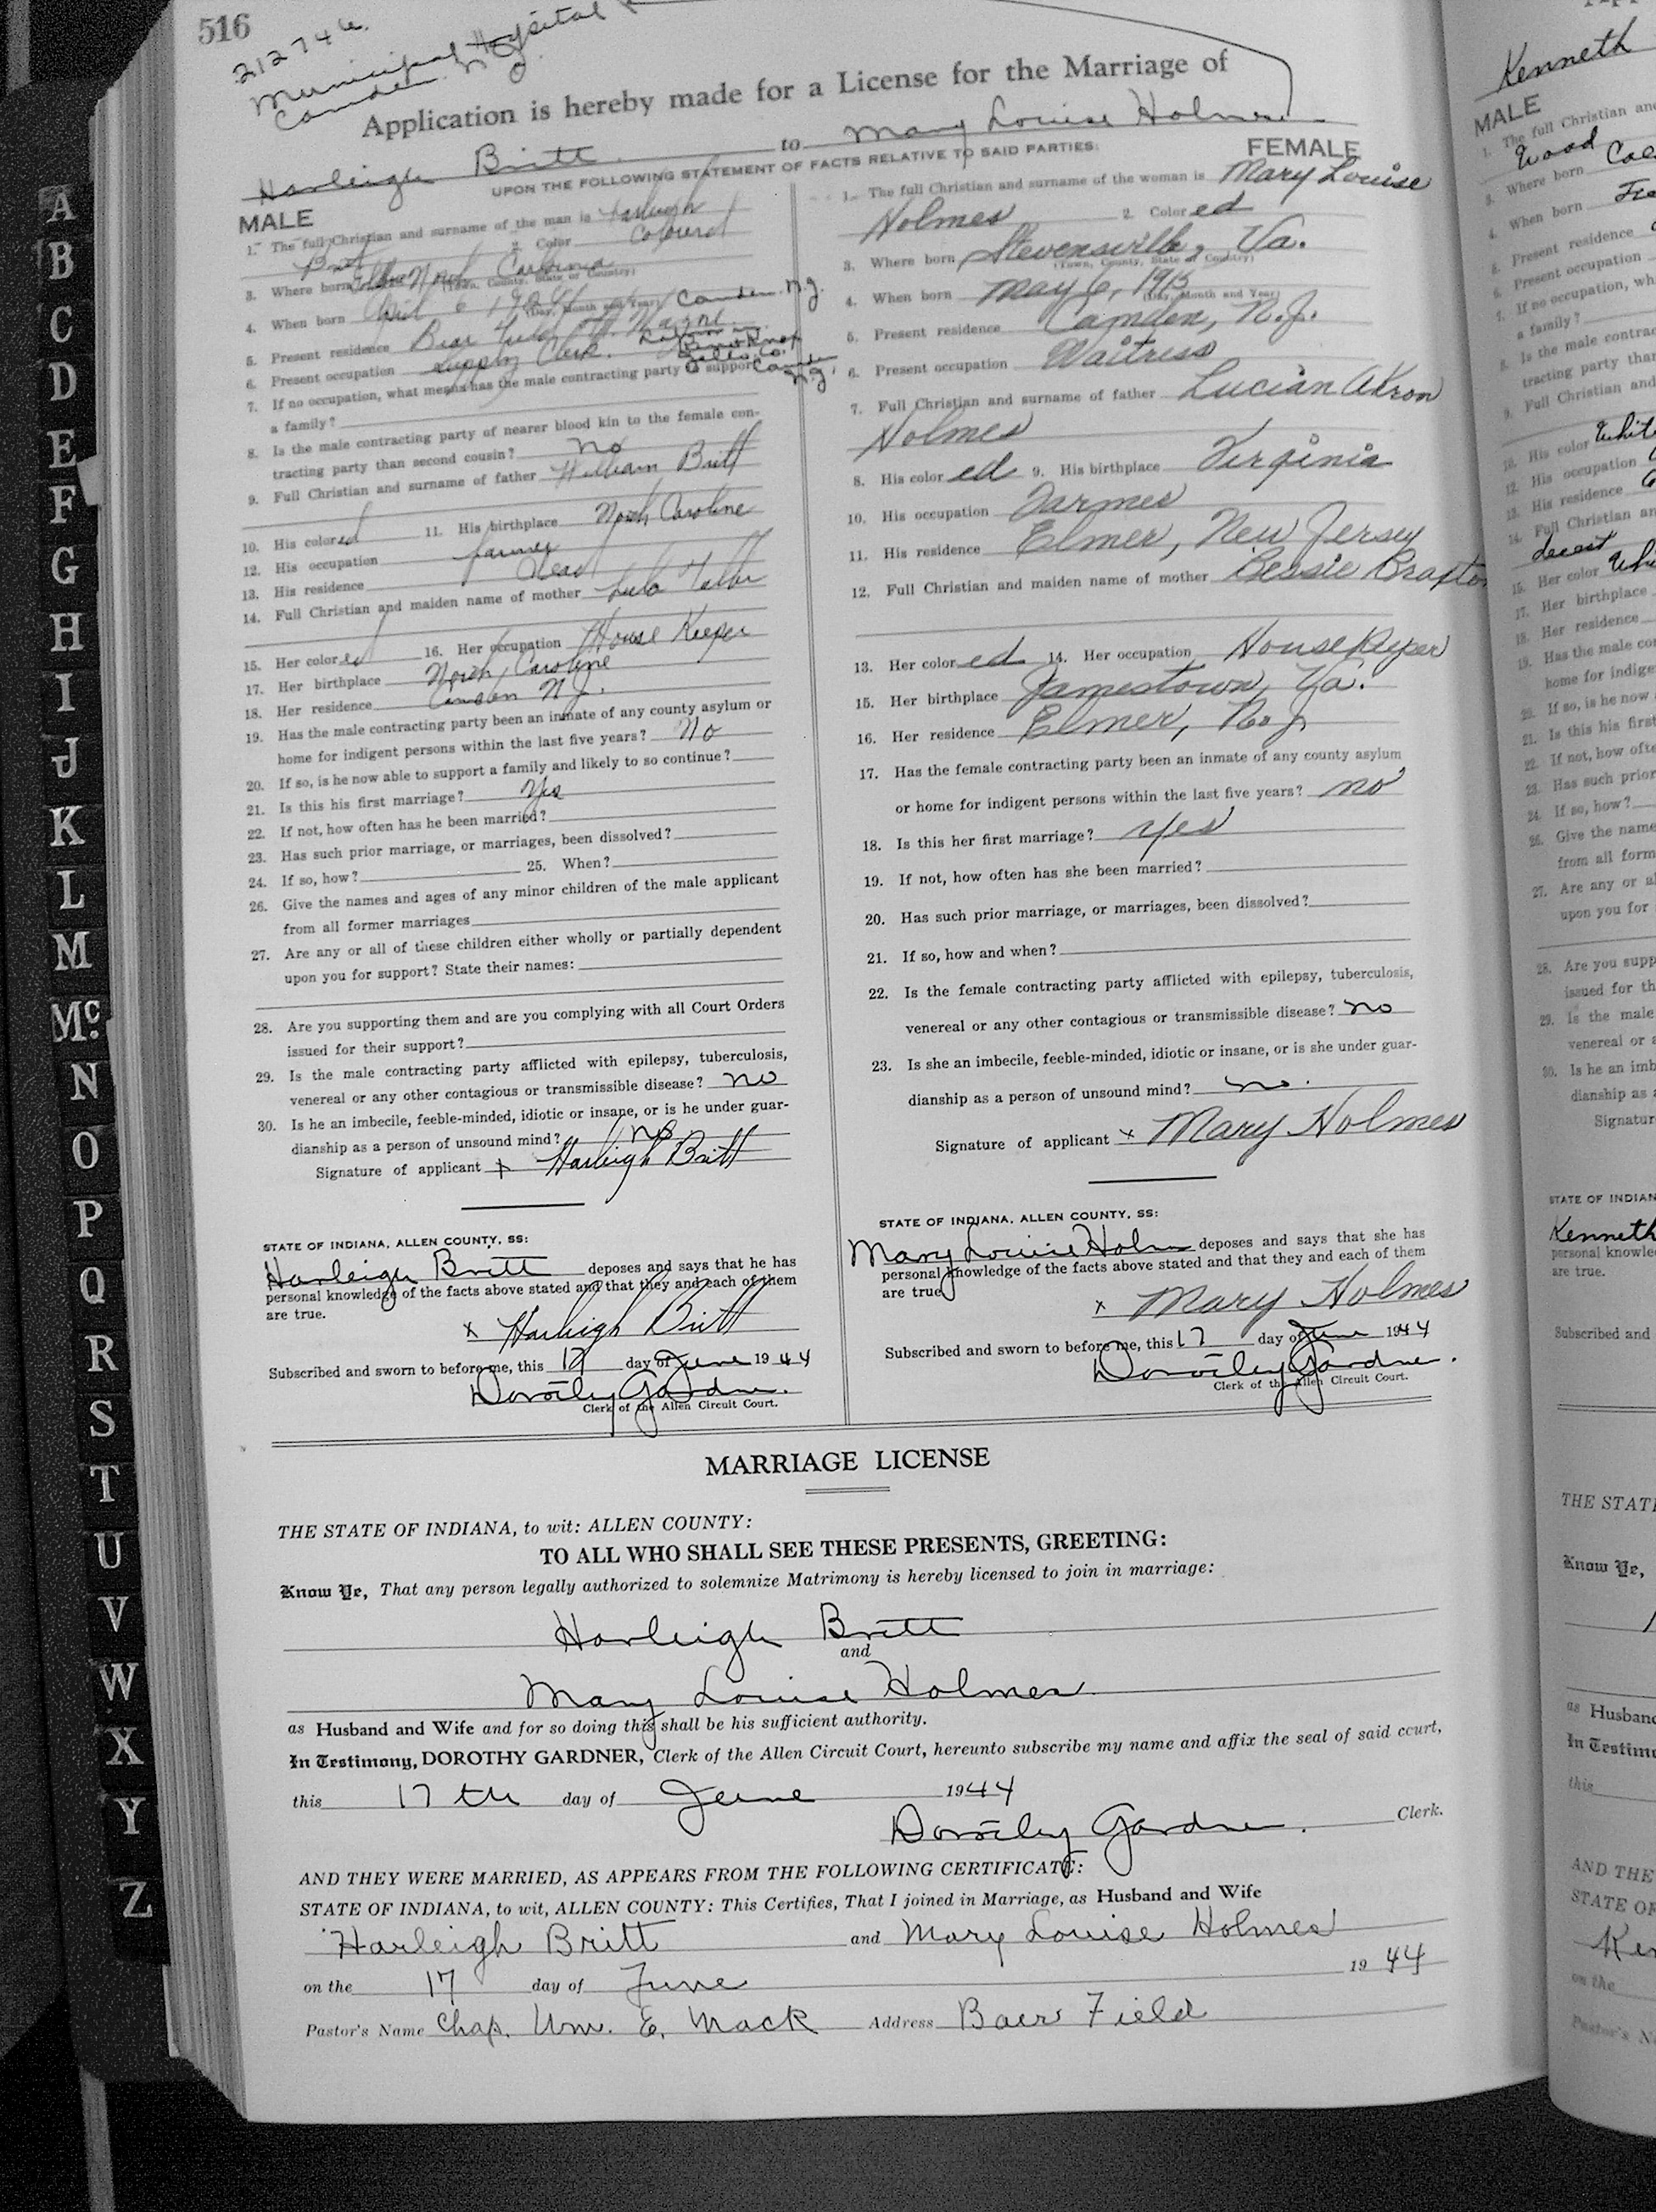 516
212746
Municipal Hospital
Camden N.J.
Application is hereby made for a License for the Marriage of
Harleigh Britt to Mary Louise Holmes
UPON THE FOLLOWING STATEMENT OF FACTS RELATIVE TO SAID PARTIES:
MALE
1. The full Christian and surname of the man is Harleigh
Britt 2. Color Colored
3. Where born North Carolina
(Town, County, State or Country)
4. When born
(Day, Month and Year) Camden N.J.
5. Present residence Bear Field Ft. Wayne
6. Present occupation Supply Clerk.
Camden
N.J.
7. If no occupation, what means has the male contracting party to support
a family?
8. Is the male contracting party of nearer blood kin to the female con-
tracting party than second cousin? no
9. Full Christian and surname of father William Britt
10. His colored 11. His birthplace North Caroline
12. His occupation farmer
13. His residence dead
14. Full Christian and maiden name of mother Lula
15. Her colored 16. Her occupation House Keeper
17. Her birthplace North Caroline
18. Her residence Camden N.J.
19. Has the male contracting party been an inmate of any county asylum or
home for indigent persons within the last five years? No
20. If so, is he now able to support a family and likely to so continue?
21. Is this his first marriage? Yes
22. If not, how often has he been married?
23. Has such prior marriage, or marriages, been dissolved?
24. If so, how? 25. When?
26. Give the names and ages of any minor children of the male applicant
from all former marriages
27. Are any or all of these children either wholly or partially dependent
upon you for support? State their names:
28. Are you supporting them and are you complying with all Court Orders
issued for their support?
29. Is the male contracting party afflicted with epilepsy, tuberculosis,
venereal or any other contagious or transmissible disease? no
30. Is he an imbecile, feeble-minded, idiotic or insane, or is he under guar-
dianship as a person of unsound mind? no
Signature of applicant x Harleigh Britt
STATE OF INDIANA, ALLEN COUNTY, SS:
Harleigh Britt deposes and says that he has
personal knowledge of the facts above stated and that they and each of them
are true.
x Harleigh Britt
Subscribed and sworn to before me, this 17 day of June 1944
Dorothy Gardner.
Clerk of the Allen Circuit Court.
FEMALE
1. The full Christian and surname of the woman is Mary Louise
Holmes 2. Colored
3. Where born Stevensville, Va.
(Town, County, State or Country)
4. When born May 6, 1913
(Day, Month and Year)
5. Present residence Camden, N.J.
6. Present occupation Waitress
7. Full Christian and surname of father Lucian Akron
Holmes
8. His colored 9. His birthplace Virginia
10. His occupation Farmer
11. His residence Elmer, New Jersey
12. Full Christian and maiden name of mother Bessie Braxton
13. Her colored 14. Her occupation Housekeeper
15. Her birthplace Jamestown, Va.
16. Her residence Elmer, N.J.
17. Has the female contracting party been an inmate of any county asylum
or home for indigent persons within the last five years? no
18. Is this her first marriage? yes
19. If not, how often has she been married?
20. Has such prior marriage, or marriages, been dissolved?
21. If so, how and when?
22. Is the female contracting party afflicted with epilepsy, tuberculosis,
venereal or any other contagious or transmissible disease? no
23. Is she an imbecile, feeble-minded, idiotic or insane, or is she under guar-
dianship as a person of unsound mind? no.
Signature of applicant x Mary Holmes
STATE OF INDIANA, ALLEN COUNTY, SS:
Mary Louise Holmes deposes and says that she has
personal knowledge of the facts above stated and that they and each of them
are true
x Mary Holmes
Subscribed and sworn to before me, this 17 day of June 1944
Dorothy Gardner.
Clerk of the Allen Circuit Court.
MARRIAGE LICENSE
THE STATE OF INDIANA, to wit: ALLEN COUNTY:
TO ALL WHO SHALL SEE THESE PRESENTS, GREETING:
Know Ye, That any person legally authorized to solemnize Matrimony is hereby licensed to join in marriage:
Harleigh Britt
and
Mary Louise Holmes
as Husband and Wife and for so doing this shall be his sufficient authority.
In Testimony, DOROTHY GARDNER, Clerk of the Allen Circuit Court, hereunto subscribe my name and affix the seal of said court,
this 17th day of June 1944
Dorothy Gardner. Clerk.
AND THEY WERE MARRIED, AS APPEARS FROM THE FOLLOWING CERTIFICATE:
STATE OF INDIANA, to wit, ALLEN COUNTY: This Certifies, That I joined in Marriage, as Husband and Wife
Harleigh Britt and Mary Louise Holmes
on the 17 day of June 1944
Pastor's Name Chap. Wm. E. Mack Address Baer Field
A
B
C
D
E
F
G
H
I
J
K
L
M
Mc
N
O
P
Q
R
S
T
U
V
W
X
Y
Z
Kenneth
MALE
1. The full Christian and
Wood
3. Where born
4. When born
5. Present residence
6. Present occupation
7. If no occupation, wh
a family?
8. Is the male contrac
tracting party than
9. Full Christian and
10. His color White
12. His occupation
13. His residence
14. Full Christian an
15. Her color
17. Her birthplace
18. Her residence
19. Has the male co
home for indige
20. If so, is he now
21. Is this his first
22. If not, how ofte
23. Has such prior
24. If so, how?
26. Give the name
from all form
27. Are any or al
upon you for
28. Are you supp
issued for th
29. Is the male
venereal or a
30. Is he an imb
dianship as a
Signatur
STATE OF INDIAN
Kenneth
personal knowle
are true.
Subscribed and
THE STAT
Know Ye,
as Husband
In Testimo
this
AND THE
STATE OF
Ken
on the
Pastor's N